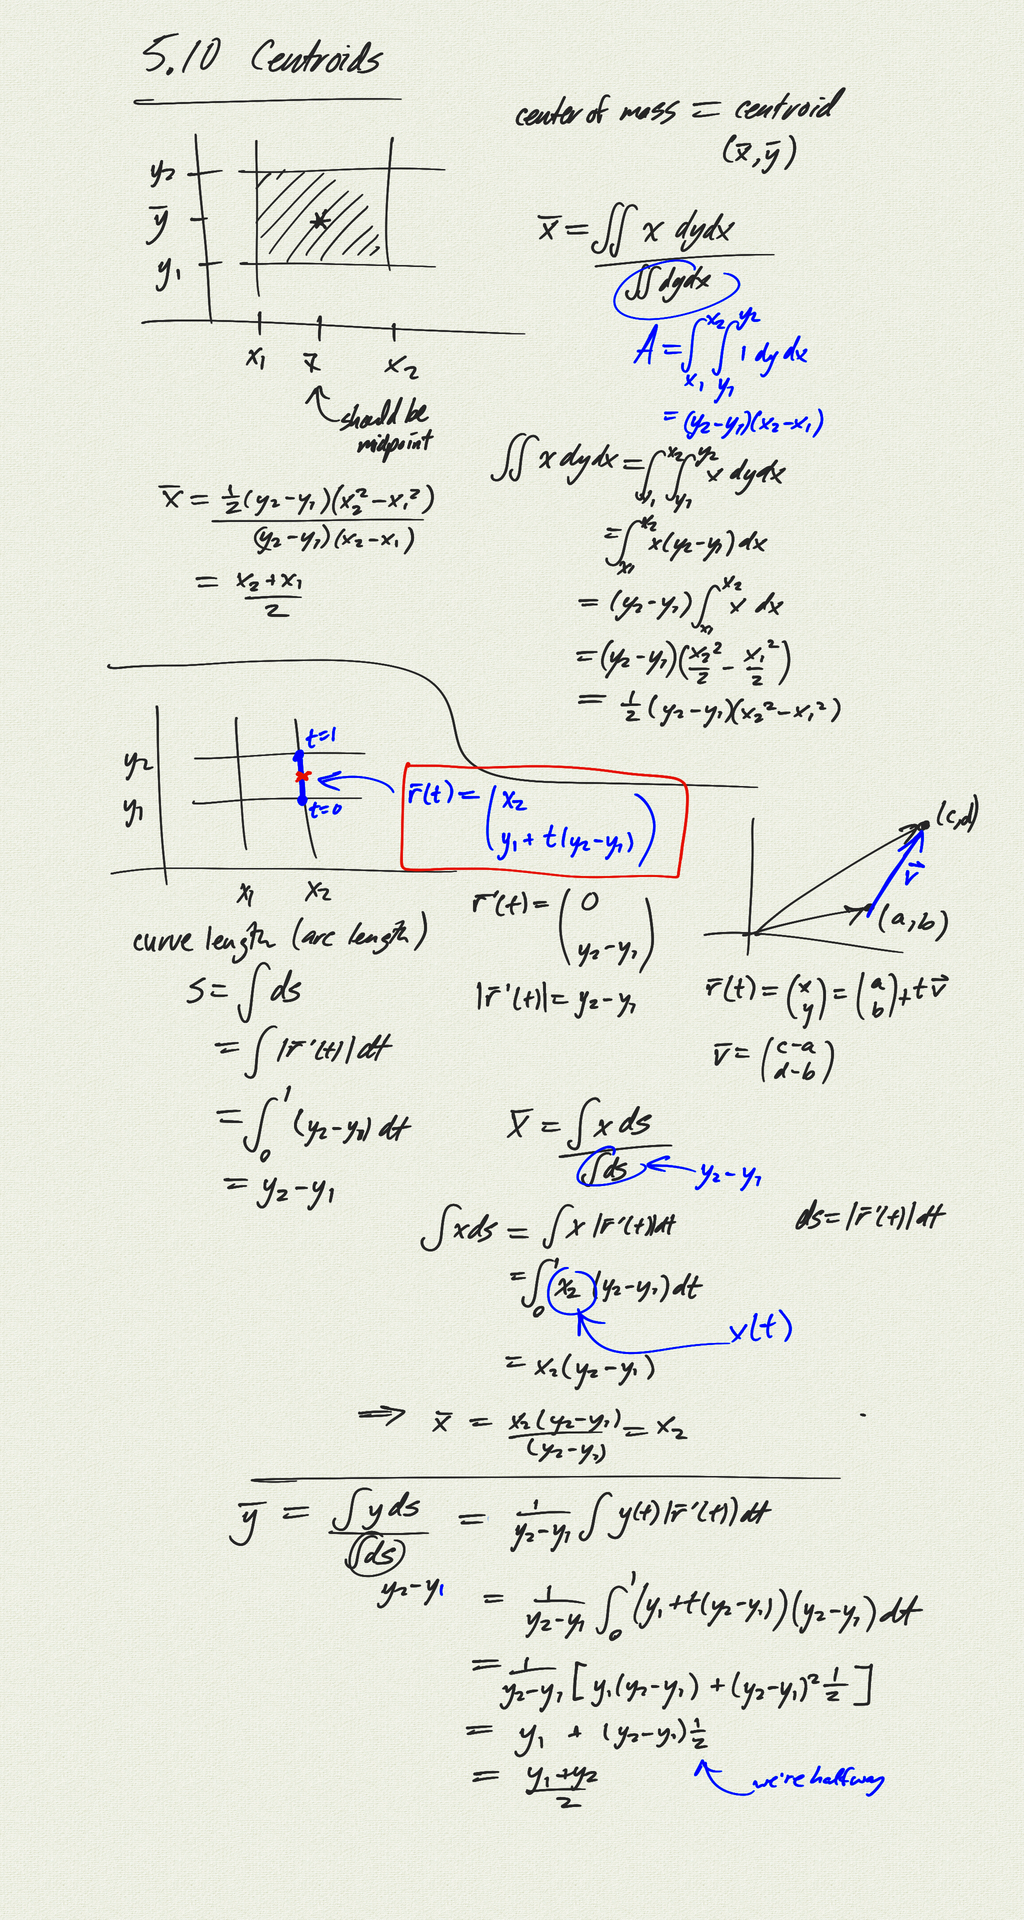 5.10 Centroids
center of mass = centroid
(x̄, ȳ)
y₂
ȳ
y₁
x₁ x̄ x₂
should be
midpoint
x̄ = ∬ x dydx / ∬ dydx
A = ∫_{x₁}^{x₂} ∫_{y₁}^{y₂} 1 dy dx
= (y₂-y₁)(x₂-x₁)
∬ x dydx = ∫_{x₁}^{x₂} ∫_{y₁}^{y₂} x dydx
= ∫_{x₁}^{x₂} x(y₂-y₁) dx
= (y₂-y₁) ∫_{x₁}^{x₂} x dx
= (y₂-y₁)(x₂²/2 - x₁²/2)
= 1/2 (y₂-y₁)(x₂²-x₁²)
x̄ = 1/2 (y₂-y₁)(x₂²-x₁²) / (y₂-y₁)(x₂-x₁)
= x₂+x₁ / 2
y₂
y₁
t=1
t=0
x₁ x₂
r̄(t) = (x₂
y₁+t(y₂-y₁))
r̄'(t) = (0
y₂-y₁)
|r̄'(t)| = y₂-y₁
(c,d)
v⃗
(a,b)
r̄(t) = (x y) = (a b) + t v⃗
v̄ = (c-a
d-b)
curve length (arc length)
s = ∫ ds
= ∫ |r̄'(t)| dt
= ∫₀¹ (y₂-y₁) dt
= y₂-y₁
x̄ = ∫ x ds / ∫ ds ← y₂-y₁
∫ x ds = ∫ x |r̄'(t)| dt
ds = |r̄'(t)| dt
= ∫₀¹ x₂ (y₂-y₁) dt
x(t)
= x₂(y₂-y₁)
⇒ x̄ = x₂(y₂-y₁) / (y₂-y₁) = x₂
ȳ = ∫ y ds / ∫ ds = 1/(y₂-y₁) ∫ y(t) |r̄'(t)| dt
y₂-y₁
= 1/(y₂-y₁) ∫₀¹ (y₁+t(y₂-y₁))(y₂-y₁) dt
= 1/(y₂-y₁) [y₁(y₂-y₁) + (y₂-y₁)² 1/2]
= y₁ + (y₂-y₁) 1/2
= y₁+y₂ / 2
we're halfway